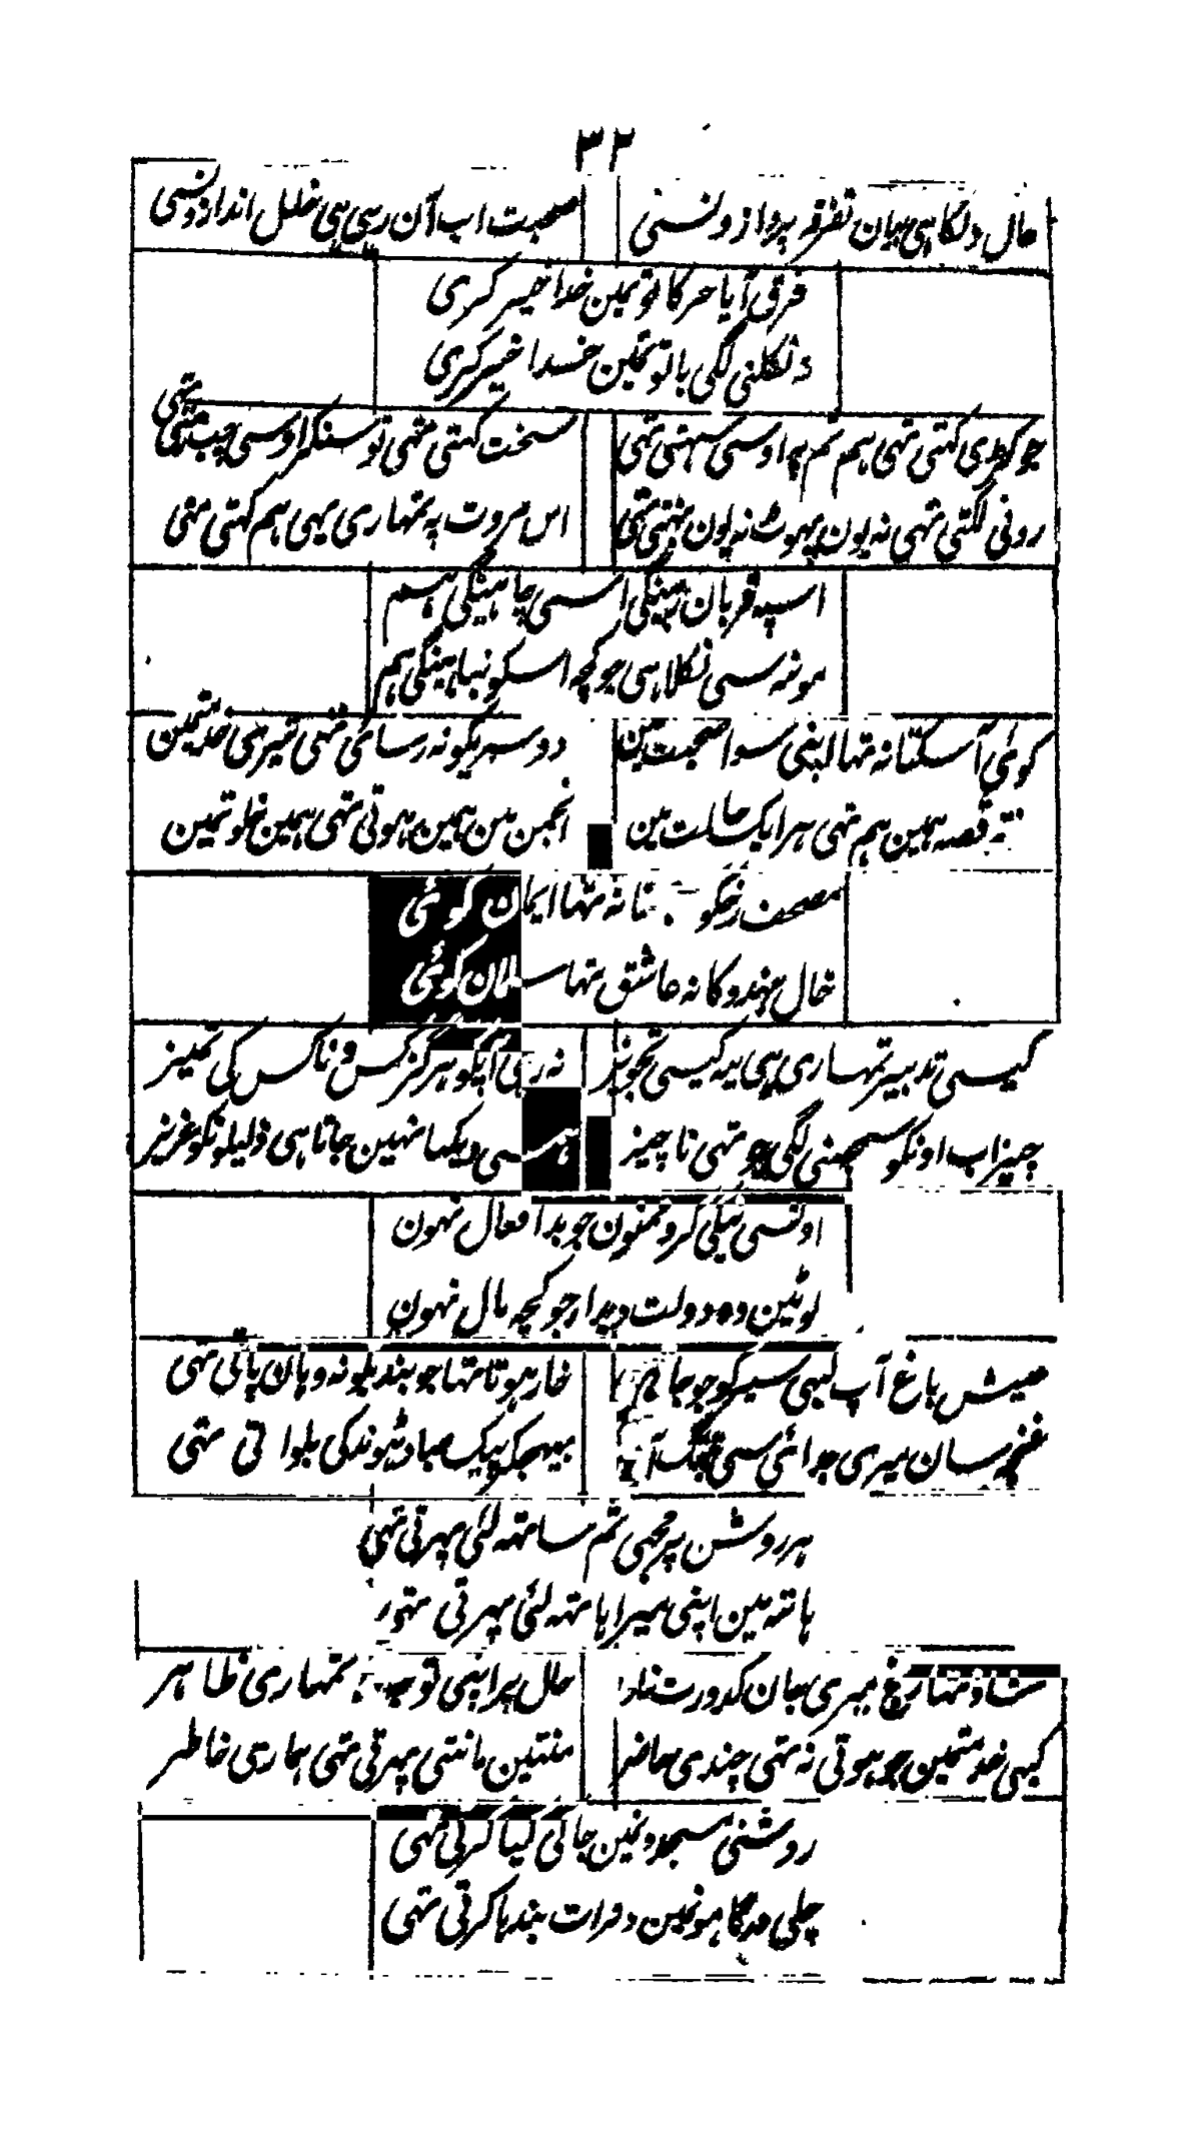 ٣٢
حال دلکا ہی بیان تفرقہ پرواز ونسی
صحبت اب آن رہی ہی خلل اندازونسی
فرق آیا حرکا تو نمین خدا خیر کری
دنکلنی لگی با تو نمین خدا خیر کری
جو کڑی کہتی تہی ہم تم پہ اوسی سہتی تہی
سخت کہتی تہی تو سنکر اوسی چپ رہتی تہی
رونی لگتی تہی نہ یون پہوٹ نہ یون بہتی تہی
اس مروت پہ تمہاری یہی ہم کہتی تہی
اسپہ قربان رہینگی اسی چاہینگی ہم
مونہ سی نکلا ہی جو کچہ اسکو نباہینگی ہم
کوئی آ سکتا نہ تہا اپنی سوا صحبت مین
دوسریکو نہ رسائی تہی تیری خدمتمین
تہ قصہ ہمین ہم تہی ہر ایک حالت مین
انجمن من ہمین ہوتی تہی ہمین خلوتمین
مصحف رخکو نہ تہا ایمان کوئی
خال ہندو کا نہ عاشق تہا مسلمان کوئی
کیسی تدبیر تمہاری ہی یہ کیسی تجویز
نہ رہی اپکو ہرگز کس و ناکس کی تمیز
چیز اب اونکو سمجہنی لگی جو تہی ناچیز
دیکہا نہین جاتا ہی ذلیلونکو عزیز
اونسی نیکی کرو ممنون جو بد افعال نہون
لوٹین وہ دولت دیدار جو کچہ مال نہون
عیش باغ آپ کبہی سیر کو جو جا
خار ہوتا تہا جو بندیکو نہ وہان پاتی تہی
غنچہ سان میری جدائی سی تنگ آ
بہیجکر پیک صبا ڈہونڈکی بلوا تی تہی
ہر روشن پر مجہی تم ساتہہ لئی پہرتی تہی
ہاتہ مین اپنی میرا ہاتہہ لئی پہرتی
شاد تہا رخ میری جان کدورت
حال پر اپنی توجہ تمہاری ظاہر
کبہی خدمتمین جو ہوتی نہ تہی چندی حاضر
منتین مانتی پہرتی تہی ہماری خاطر
روشنی مسجدونمین جاکی کیا کرتی تہی
چلی درگاہونمین دنرات بندہا کرتی تہی